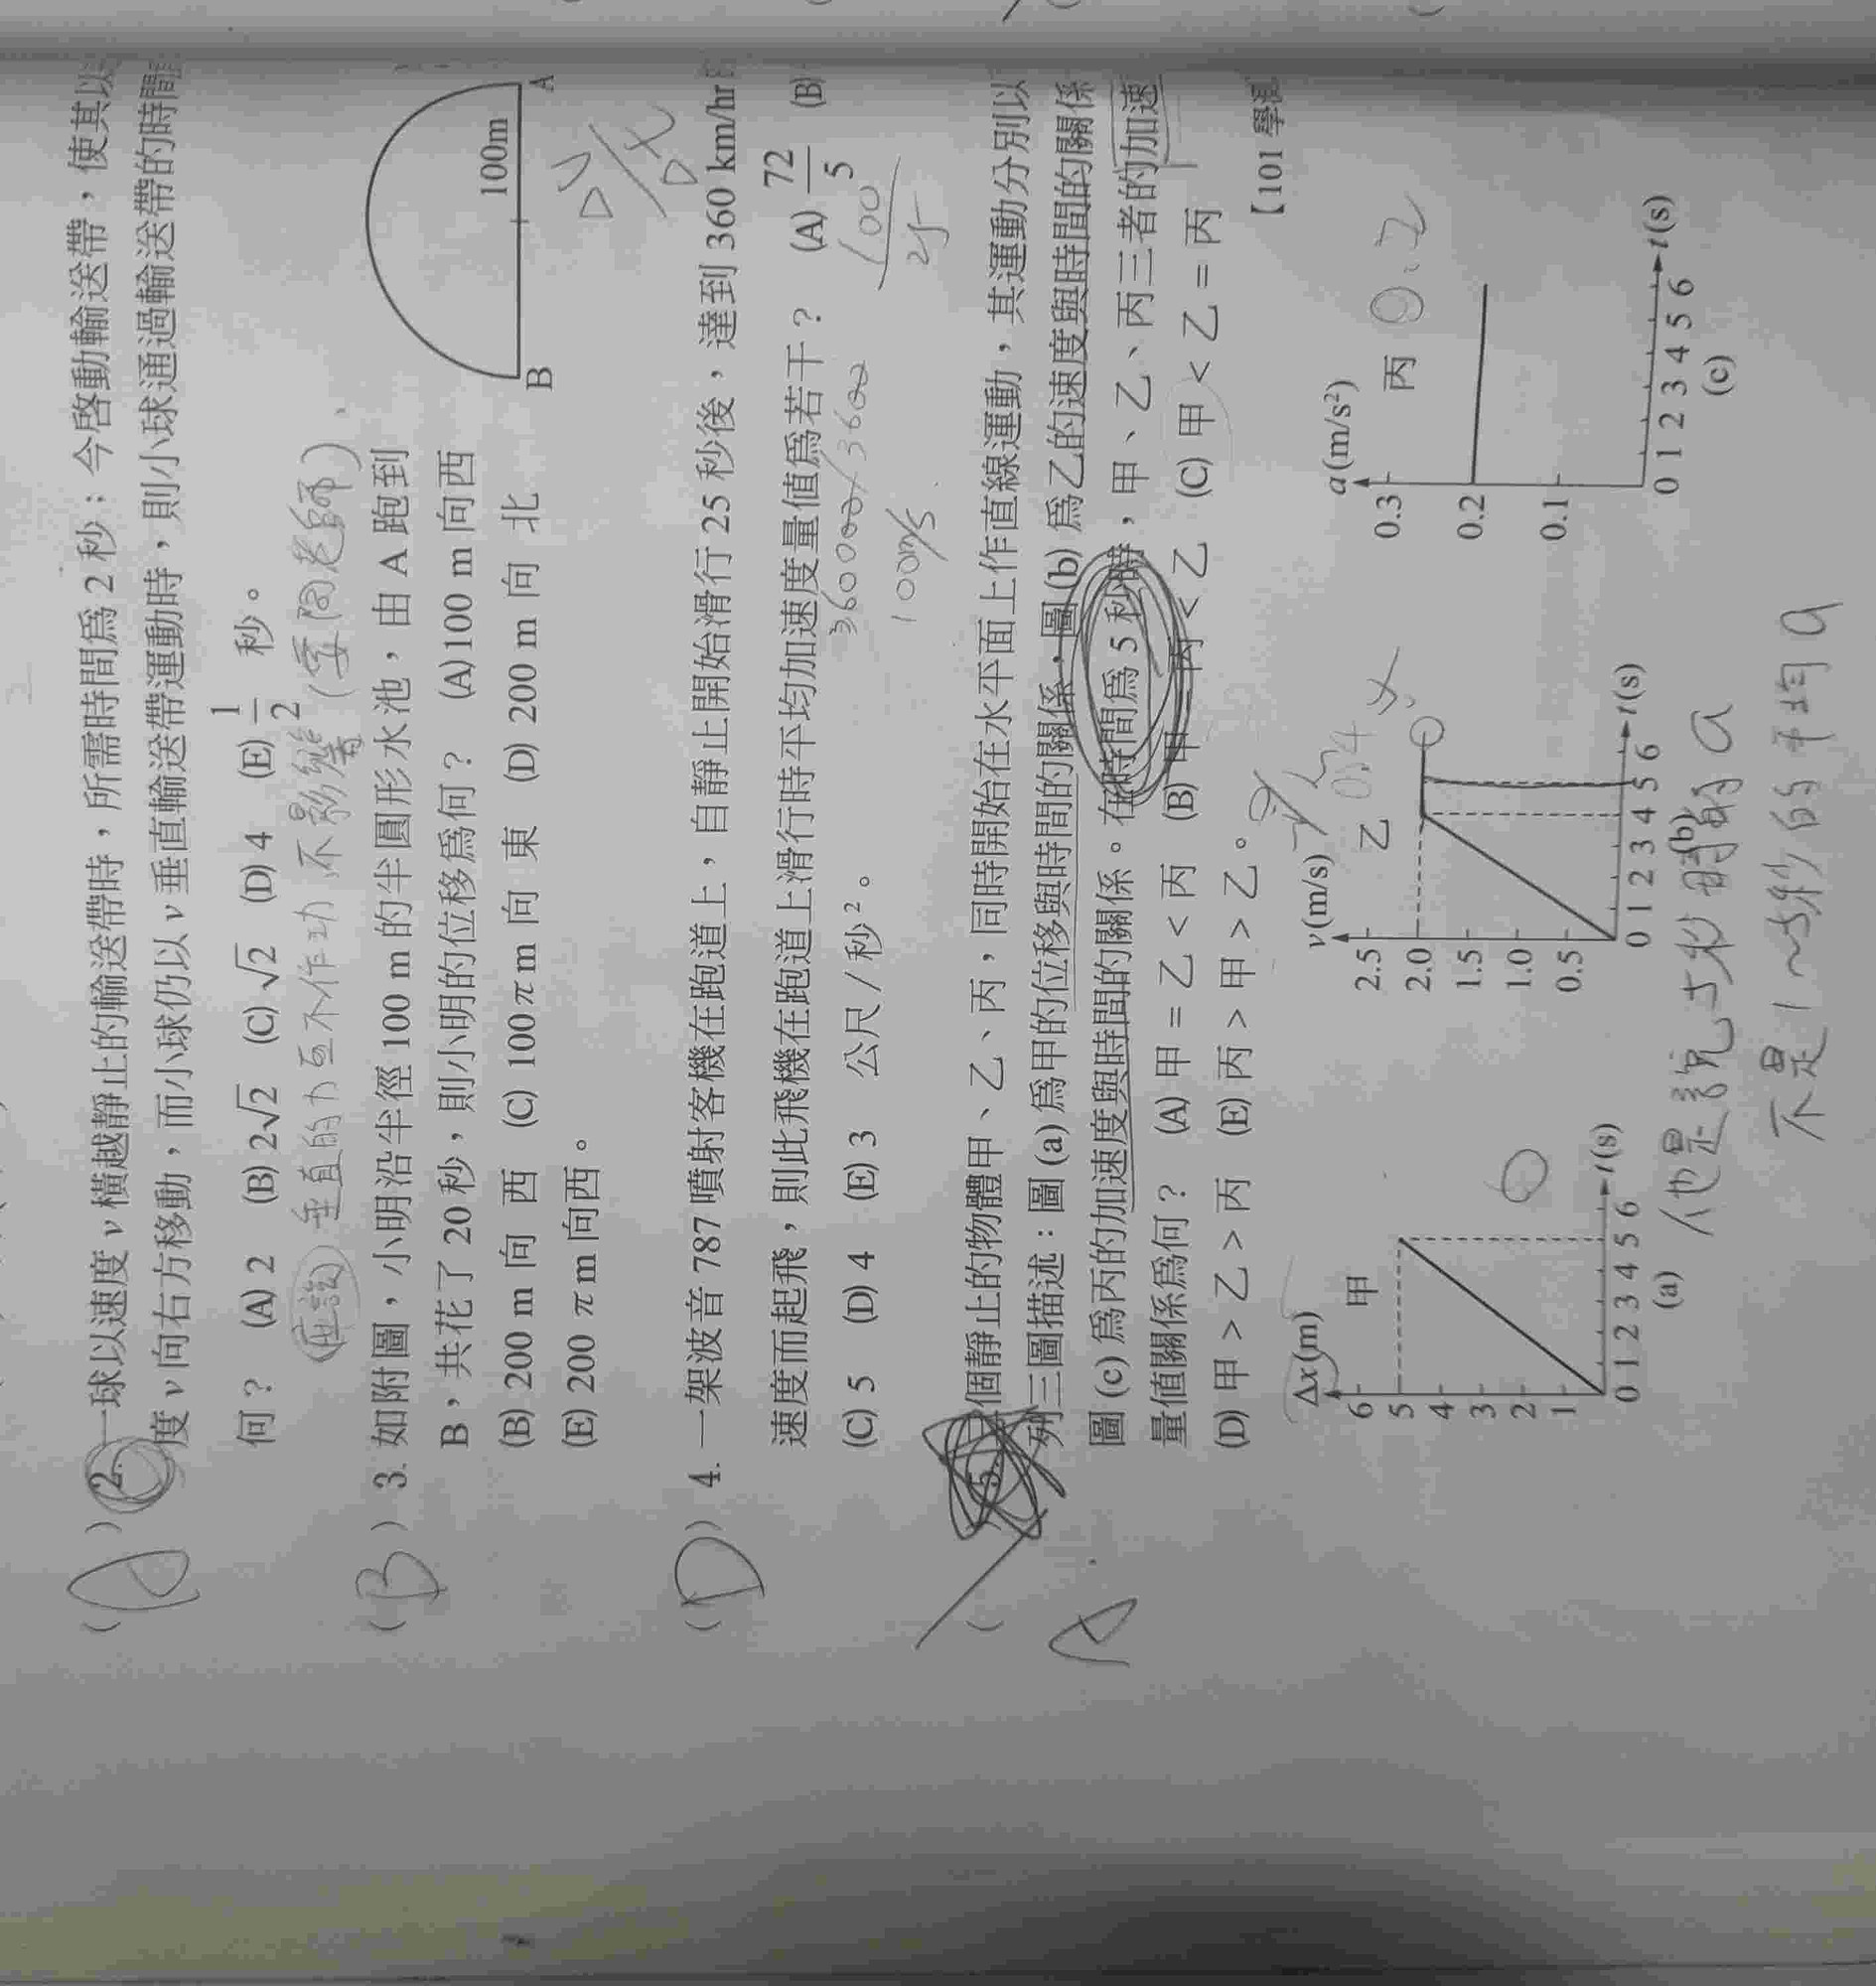 (A) 2. 一球以速度 v 橫越靜止的輸送帶時，所需時間爲 2 秒：今啓動輸送帶，使其以
度 v 向右方移動，而小球仍以 v 垂直輸送帶運動時，則小球通過輸送帶的時間
何？ (A) 2 (B) 2√2 (C) √2 (D) 4 (E) 1/2 秒。
垂直的力互不作功 不影響
(B) 3. 如附圖，小明沿半徑 100 m 的半圓形水池，由 A 跑到
B，共花了 20 秒，則小明的位移爲何？ (A)100 m 向西
(B) 200 m 向 西 (C) 100π m 向 東 (D) 200 m 向 北
(E) 200 π m 向西。
100m
B
A
(D) 4. 一架波音 787 噴射客機在跑道上，自靜止開始滑行 25 秒後，達到 360 km/hr
速度而起飛，則此飛機在跑道上滑行時平均加速度量值爲若干？ (A) 72/5 (B)
(C) 5 (D) 4 (E) 3 公尺/秒²。
100m/s
100
25
A
5. 個靜止的物體甲、乙、丙，同時開始在水平面上作直線運動，其運動分別以
列三圖描述：圖 (a) 爲甲的位移與時間的關係，圖 (b) 爲乙的速度與時間的關係
圖 (c) 爲丙的加速度與時間的關係。在時間爲 5 秒時，甲、乙、丙三者的加速
量值關係爲何？ (A) 甲 = 乙 < 丙 (B) 甲 < 丙 < 乙 (C) 甲 < 乙 = 丙
(D) 甲 > 乙 > 丙 (E) 丙 > 甲 > 乙。
【101 學測
Δx(m)
甲
6
5
4
3
2
1
0 1 2 3 4 5 6
t(s)
(a)
0
v(m/s)
乙
2.5
2.0
1.5
1.0
0.5
0 1 2 3 4 5 6
t(s)
(b)
0
a(m/s²)
丙
0.2
0.3
0.2
0.1
0 1 2 3 4 5 6
t(s)
(c)
他是說 5秒時的 a
不是 1~5秒的平均 a